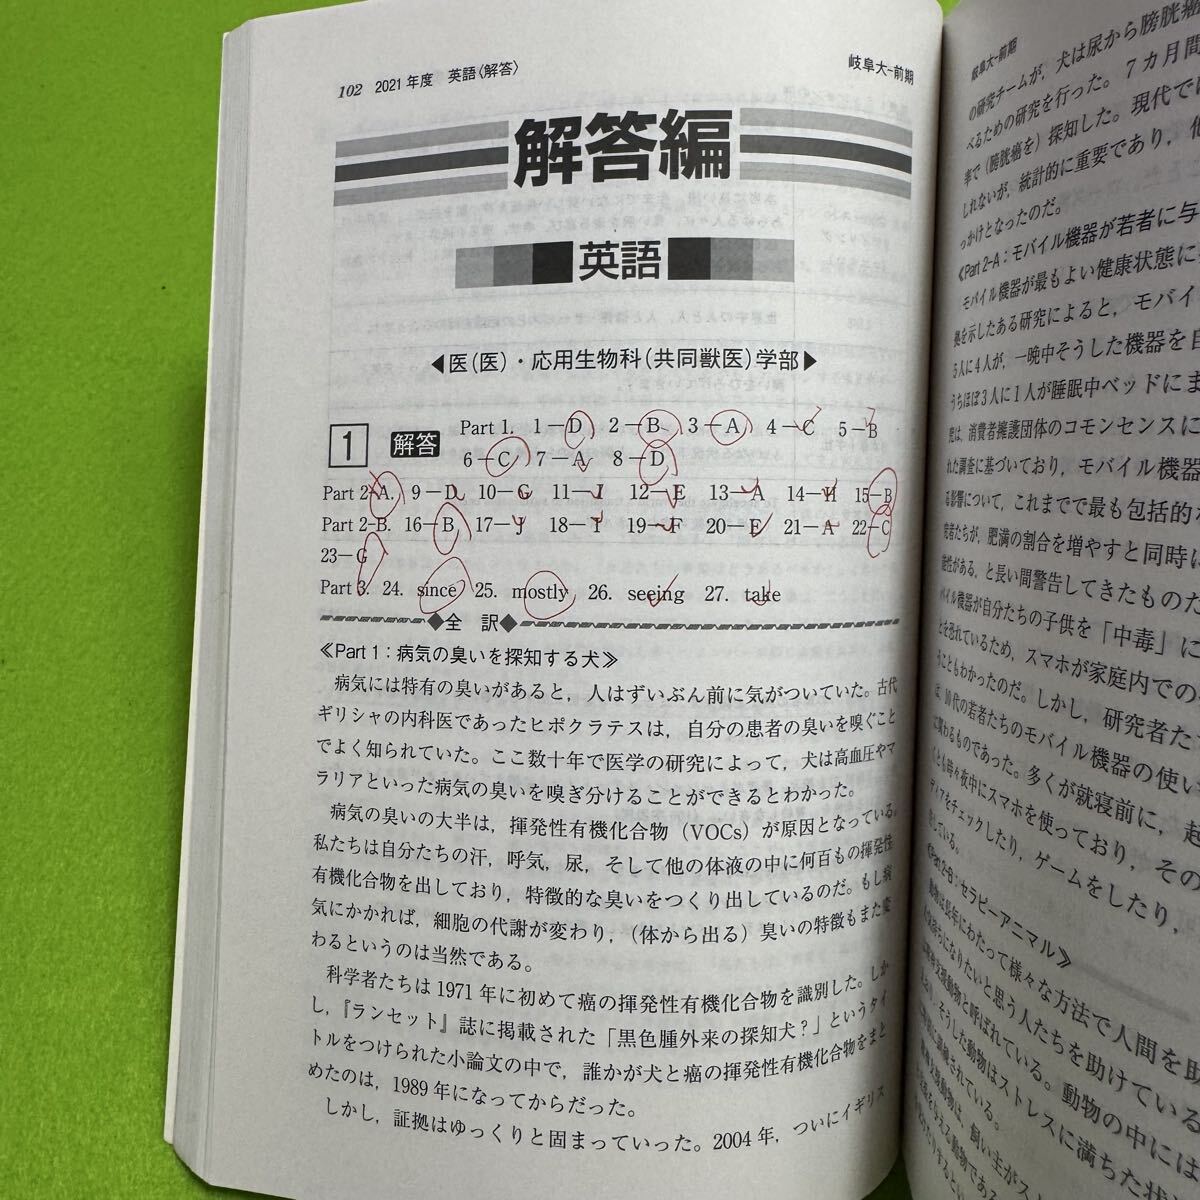 102 2021年度 英語〈解答〉
岐阜大-前期
解答編
英語
◀医(医)・応用生物科(共同獣医)学部▶
1 解答 Part 1. 1—D 2—B 3—A 4—C 5—B
6—C 7—A 8—D
Part 2-A. 9—D 10—G 11—J 12—E 13—A 14—H 15—B
Part 2-B. 16—B 17—J 18—I 19—F 20—E 21—A 22—C
23—G
Part 3. 24. since 25. mostly 26. seeing 27. take
◆全 訳◆
≪Part 1：病気の臭いを探知する犬≫
病気には特有の臭いがあると，人はずいぶん前に気がついていた。古代
ギリシャの内科医であったヒポクラテスは，自分の患者の臭いを嗅ぐこと
でよく知られていた。ここ数十年で医学の研究によって，犬は高血圧やマ
ラリアといった病気の臭いを嗅ぎ分けることができるとわかった。
病気の臭いの大半は，揮発性有機化合物（VOCs）が原因となっている。
私たちは自分たちの汗，呼気，尿，そして他の体液の中に何百もの揮発性
有機化合物を出しており，特徴的な臭いをつくり出しているのだ。もし病
気にかかれば，細胞の代謝が変わり，（体から出る）臭いの特徴もまた変
わるというのは当然である。
科学者たちは1971年に初めて癌の揮発性有機化合物を識別した。しか
し，『ランセット』誌に掲載された「黒色腫外来の探知犬？」というタイ
トルをつけられた小論文の中で，誰かが犬と癌の揮発性有機化合物をまと
めたのは，1989年になってからだった。
しかし，証拠はゆっくりと固まっていった。2004年，ついにイギリス
岐阜大-前期
の研究チームが，犬は尿から膀胱癌
べるための研究を行った。7カ月間
率で（膀胱癌を）探知した。現代では
しれないが，統計的に重要であり，他
っかけとなったのだ。
≪Part 2-A：モバイル機器が若者に与
モバイル機器が最もよい健康状態に
拠を示したある研究によると，モバイ
5人に4人が，一晩中そうした機器を
うちほぼ3人に1人が睡眠中ベッドにま
究は，消費者擁護団体のコモンセンスに
れた調査に基づいており，モバイル機器
る影響について，これまでで最も包括的な
者たちが，肥満の割合を増やすと同時に
能性がある，と長い間警告してきたものだ
バイル機器が自分たちの子供を「中毒」に
とを恐れているため，スマホが家庭内での
うこともわかったのだ。しかし，研究者た
は，10代の若者たちのモバイル機器の使い
に関わるものであった。多くが就寝前に，起
くとも時々夜中にスマホを使っており，その
ディアをチェックしたり，ゲームをしたり，
している。
≪Part 2-B：セラピーアニマル≫
動物は長年にわたって様々な方法で人間を助
ちになりたいと思う人たちを助けている
動物と呼ばれている。動物の中には
そうした動物はストレスに満ちた状
に訓練されている。
動物は，飼い主がス